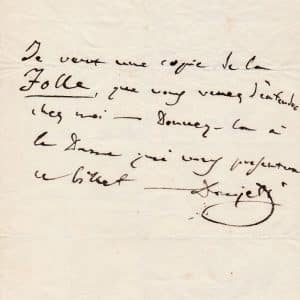 Je veux une copie de la
Folle, que vous venez d'entendre
chez moi — Donnez-la à
la Dame qui vous présentera
ce billet — Donizetti